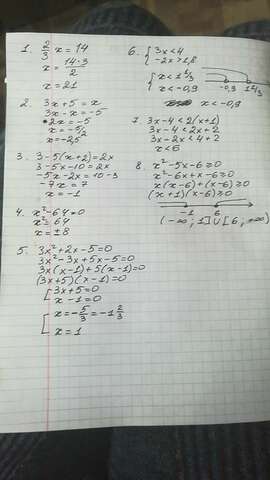 1. 2/3 x = 14
x = 14·3/2
x = 21
2. 3x+5 = x
3x-x = -5
2x = -5
x = -5/2
x = -2,5
3. 3-5(x+2)=2x
3-5x-10=2x
-5x-2x=10-3
-7x=7
x=-1
4. x²-64=0
x²=64
x=±8
5. 3x²+2x-5=0
3x²-3x+5x-5=0
3x(x-1)+5(x-1)=0
(3x+5)(x-1)=0
[3x+5=0
x-1=0
[x=-5/3=-1 2/3
x=1
6. {3x<4
-2x>1,8
{x<1 1/3
x<-0,9
-0,9 1 1/3
x<-0,9
7. 3x-4<2(x+1)
3x-4<2x+2
3x-2x<4+2
x<6
8. x²-5x-6≥0
x²-6x+x-6≥0
x(x-6)+(x-6)≥0
(x+1)(x-6)≥0
-1 6
(-∞,1]∪[6,+∞)